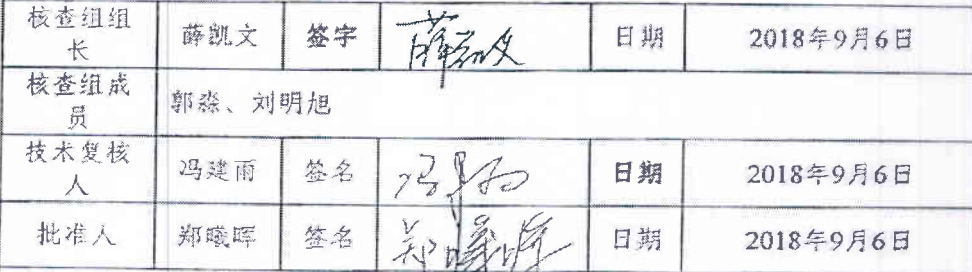 核查组组长 薛凯文 签字 薛凯文 日期 2018年9月6日
核查组成员 郭淼、刘明旭
技术复核人 冯建雨 签名 冯建雨 日期 2018年9月6日
批准人 郑曦晖 签名 郑曦晖 日期 2018年9月6日